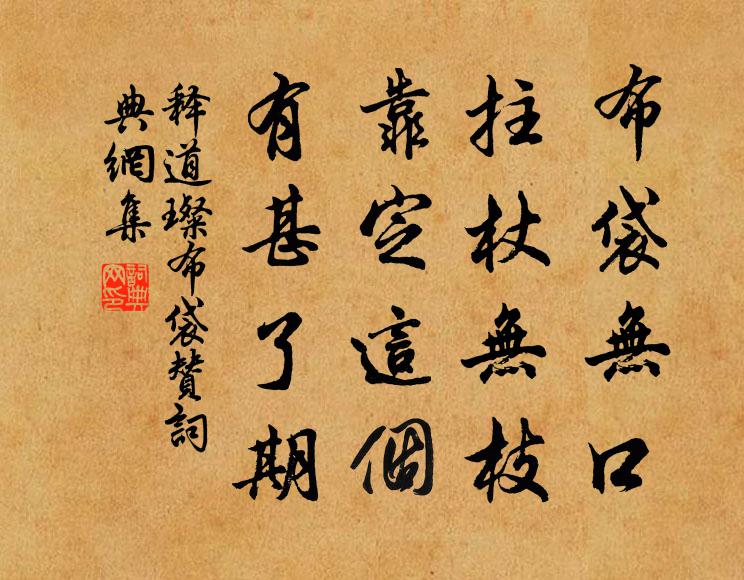 布袋無口
拄杖無枝
靠定這個
有甚了期
释道璨布袋赞詞
典網集
詞典網印